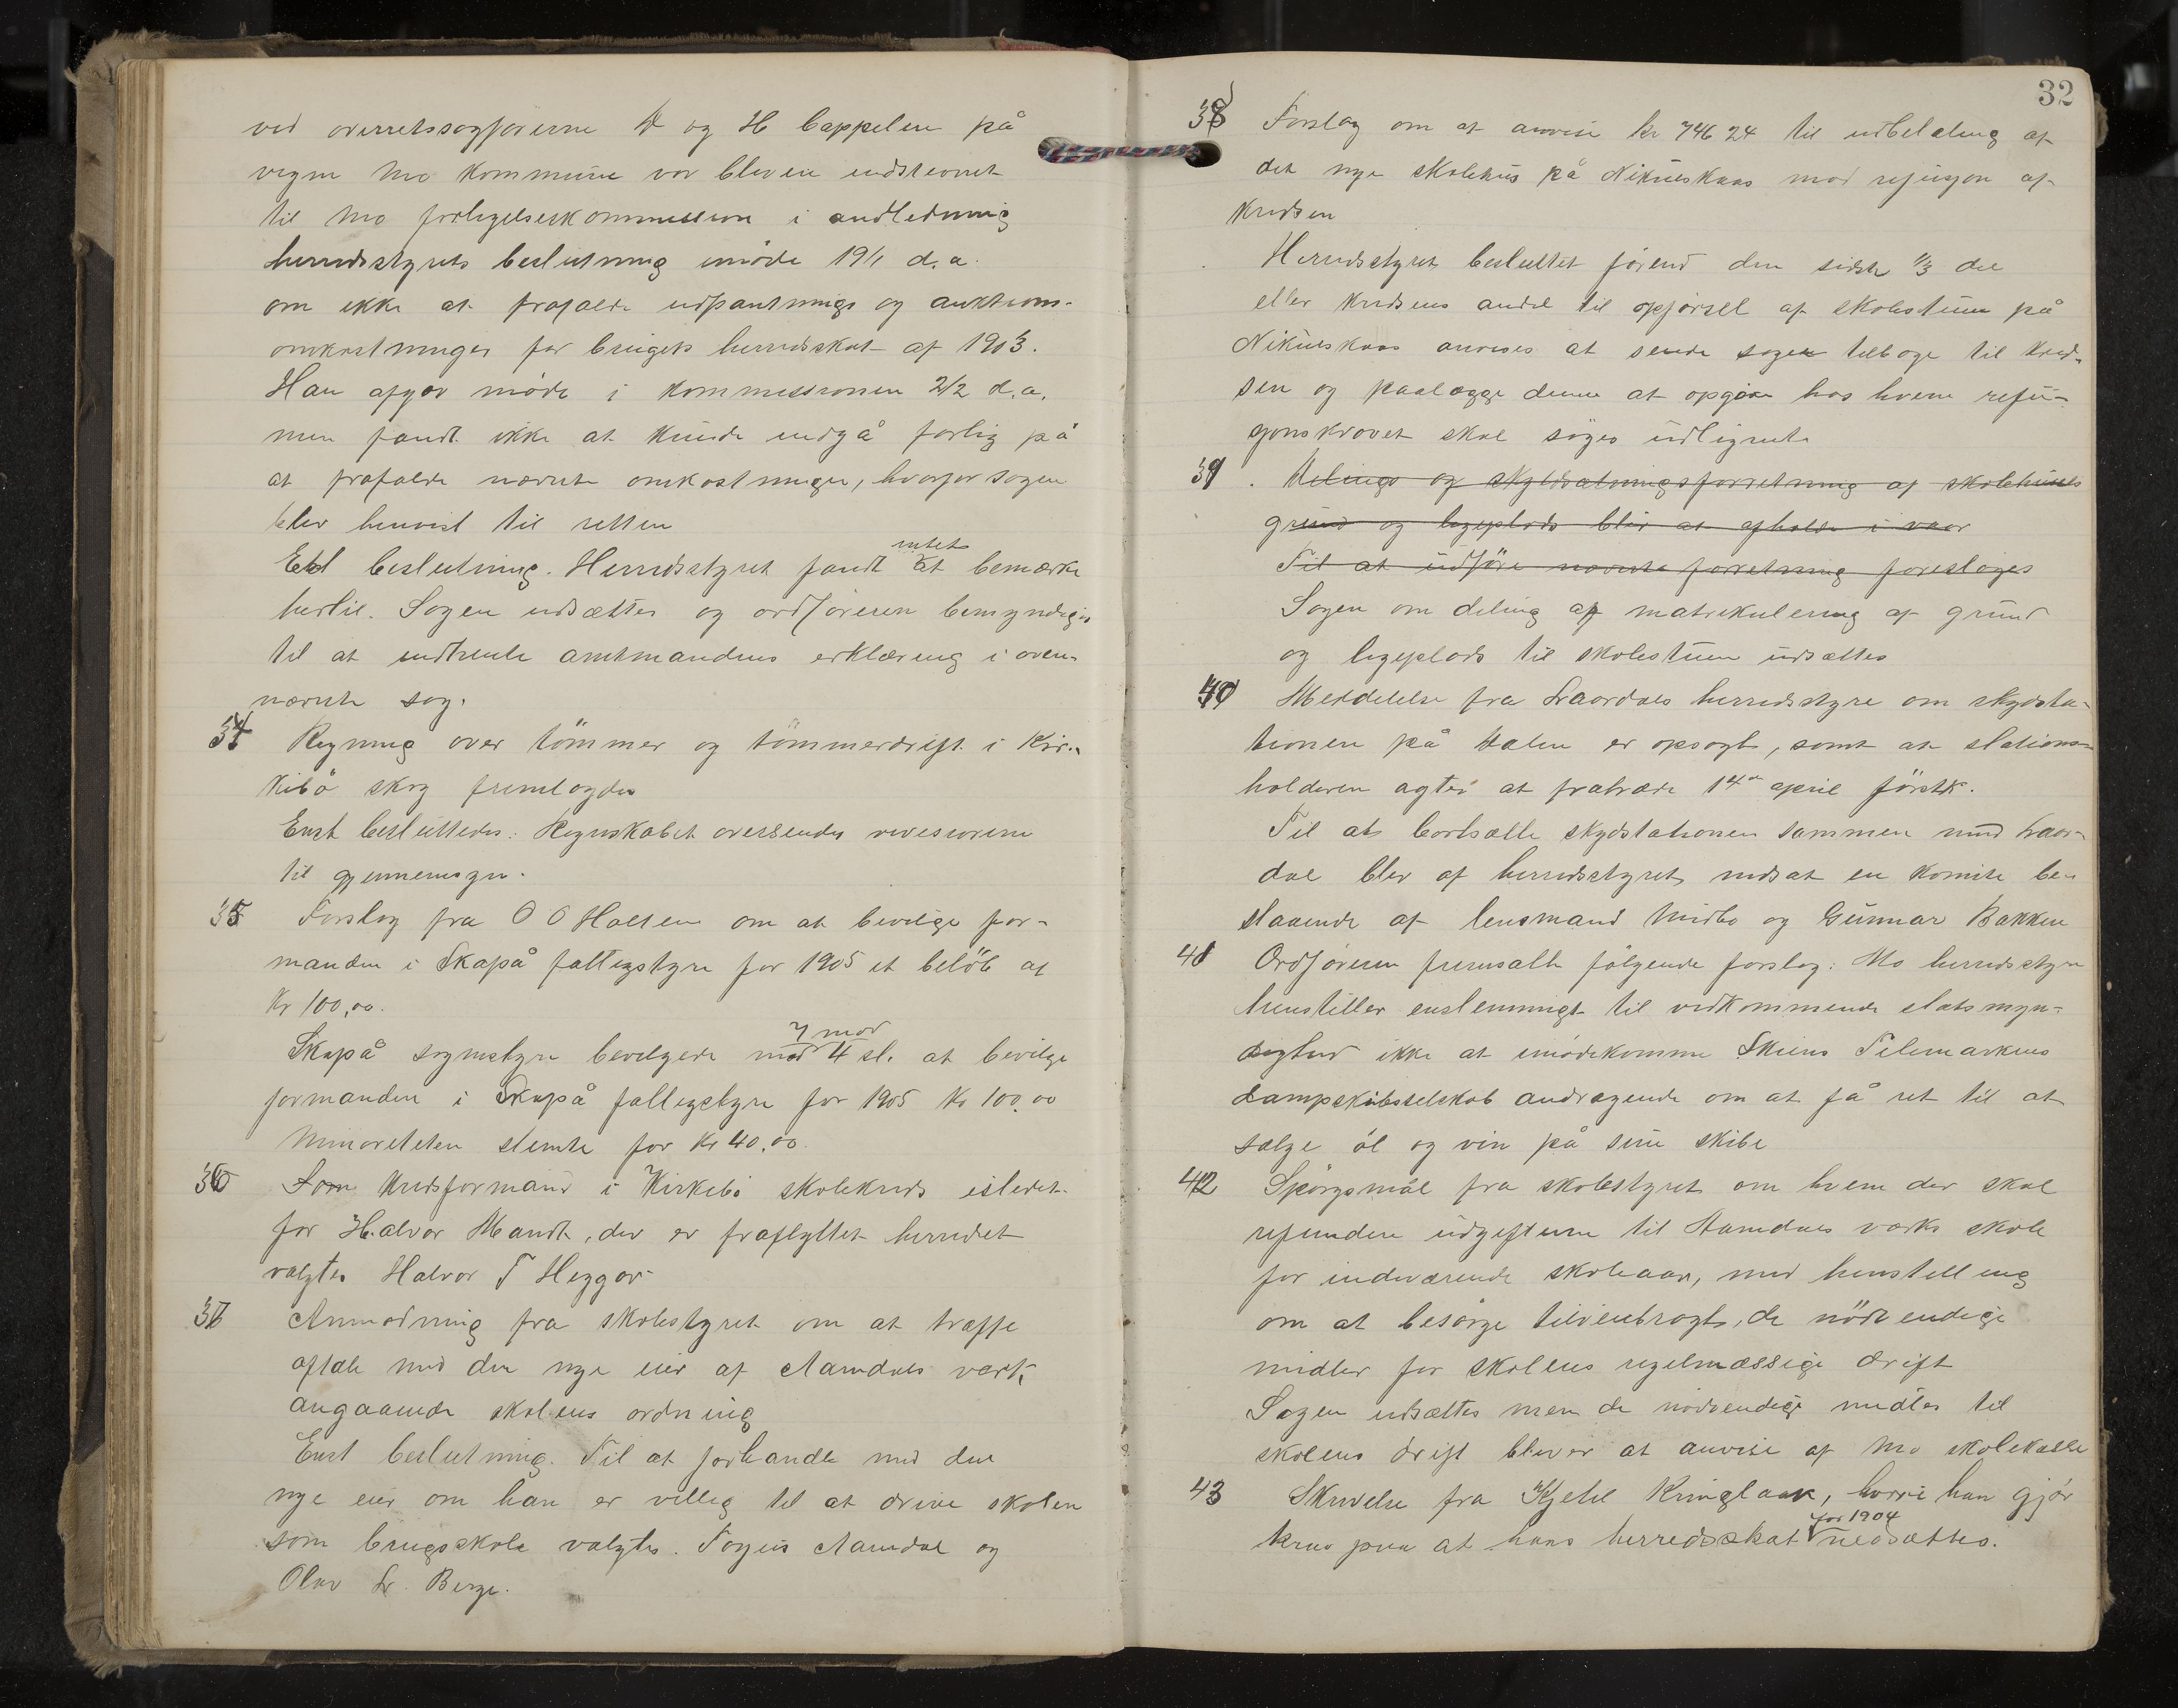 ved overretssagførerne D og H Cappelen på
vegne Mo kommune var bleven indstevnet
til Mo forligelseskommission i andledning
herredsstyrets beslutning i møde 19/1 d.a.
om ikke at frafalde udpantnings og auktions-
omkostninger for brugets herredsskat af 1903.
Han afgav møde i kommissionen 2/2 d.a.
men fandt ikke at kunde indgå forlig på
at frafalde nævnte omkostninger, hvorfor sagen
blev henvist til retten
Enst beslutning. Herredsstyret fandt intet at bemærke
hertil. Sagen udsættes og ordføreren bemyndiges
til at indhente amtmandens erklæring i oven-
nævnte sag.
34 Regning over tömmer og tömmerdrift i Kir-
kebö skog fremlagdes
Enst besluttedes: Regnskabet oversendes revisorerne
til gjennemsyn.
35 Forslag fra O O Halsen om at bevilge for-
manden i Skafså fattigstyre for 1905 et belöb af
Kr 100,00.
Skafså sognestyre bevilgede med 7 mod 4 st. at bevilge
formanden i Skafså fattigstyre for 1905 Kr 100.00
Minoriteten stemte for Kr 40.00.
36 Som kredsformand i Kirkebö skolekreds istedet
for Halvor Mandt, der er fraflyttet herredet
valgtes Halvor T Heggov
37 Anmodning fra skolestyret om at træffe
aftale med den nye eier af Aamdals verk,
angaaende skolens ordning
Enst beslutning. Til at forhandle med den
nye eier om han er villig til at drive skolen
som brugsskole valgtes. Targeis Aamdal og
Olav Berge.
32
38 Forslag om at anvise kr 746 24 til udbetaling af
det nye skolehus på Nikuskaas mod refusjon af
kredsen
Herredsstyret besluttet førend den sidste 1/3 del
eller kredsens andel til opførsel af skolestuen på
Nikuskaas anvises at sende sagen tilbage til kred-
sen og paalægge denne at opgive hos hvem refu-
sjonskravet skal søges udlignet
39. Delings og skyldsætningsforretning af skolehusets
grund og legeplads blir at afholde i vaar
Til at udføre nævnte forretning foreslåges
Sagen om deling af matrikulering af grund
og legeplads til skolestuen udsættes
40 Meddelelse fra Laardals herredsstyre om skydsta-
tionen på Dalen er opsagt, samt at stations-
holderen agter at fratræde 14de april førstk.
Til at bortsætte skydstationen sammen med Laar-
dal blev af herredsstyret nedsat en komite be-
staaende af lensmand Midbo og Gunnar Bakken
41 Ordføreren fremsatte følgende forslag: Mo herredsstyre
henstiller enstemmigt til vedkommende statsmyn-
dighed ikke at imødekomme Skiens Telemarkens
dampskibsselskab andragende om at få ret til at
sælge øl og vin på sine skibe
42 Spørgsmål fra skolestyret om hvem der skal
refundere udgifterne til Aamdals værks skole
for indeværende skoleaar, med henstelling
om at besørge tilveiebragt, de nödvendige
midler for skolens regelmæssige drift
Sagen udsættes men de nødvendige midler til
skolens drift bliver at anvise af Mo skolekasse
43 Skrivelse fra Kjetil Kringlaak, hvori han gjør
krav paa at hans herredsskat for 1904 nedsættes.